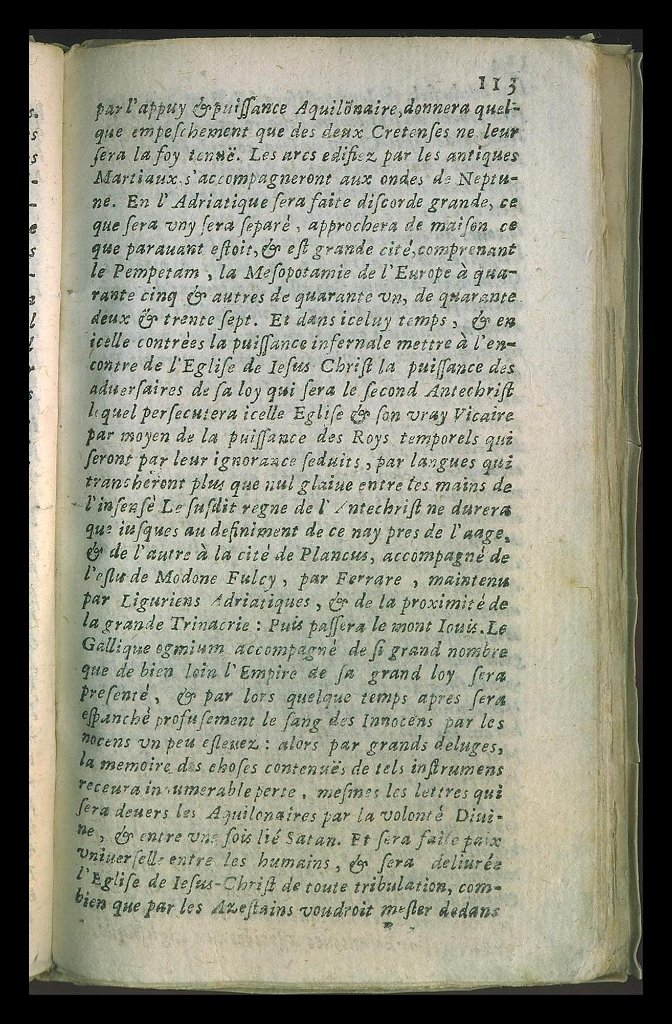 113
par l'appuy & puiſſance Aquilonaire, donnera quel-
que empeſchement que des deux Cretenſes ne leur
ſera la foy tennë. Les arcs edifiez par les antiques
Martiaux s'accompagneront aux ondes de Neptu-
ne. En l'Adriatique ſera faite diſcorde grande, ce
que ſera vny ſera ſeparé, approchera de maiſon ce
que parauant eſtoit, & eſt grande cité, comprenant
le Pempetam, la Meſopotamie de l'Europe à qua-
rante cinq & autres de quarante vn, de quarante
deux & trente ſept. Et dans iceluy temps, & en
icelle contrées la puiſſance infernale mettre à l'en-
contre de l'Egliſe de Ieſus Chriſt la puiſſance des
aduerſaires de ſa loy qui ſera le ſecond Antechriſt
lequel perſecutera icelle Egliſe & ſon vray Vicaire
par moyen de la puiſſance des Roys temporels qui
ſeront par leur ignorance ſeduits, par langues qui
trancheront plus que nul glaiue entre les mains de
l'inſenſé Le ſuſdit regne de l'Antechriſt ne durera
que iuſques au definiment de ce nay pres de l'aage,
& de l'autre à la cité de Plancus, accompagné de
l'eſlu de Modone Fulcy, par Ferrare, maintenu
par Liguriens Adriatiques, & de la proximité de
la grande Trinacrie : Puis paſſera le mont Iouis. Le
Gallique ogmium accompagné de ſi grand nombre
que de bien loin l'Empire de ſa grand loy ſera
preſenté, & par lors quelque temps apres ſera
eſpanché profuſement le ſang des Innocens par les
nocens vn peu eſleuez : alors par grands deluges,
la memoire des choſes contenuës de tels inſtrumens
receura innumerable perte, meſmes les lettres qui
ſera deuers les Aquilonaires par la volonté Diui-
ne, & entre vne fois lié Satan. Et ſera faite paix
vniuerſelle entre les humains, & ſera deliurée
l'Egliſe de Ieſus-Chriſt de toute tribulation, com-
bien que par les Azeſtains voudroit meſler dedans